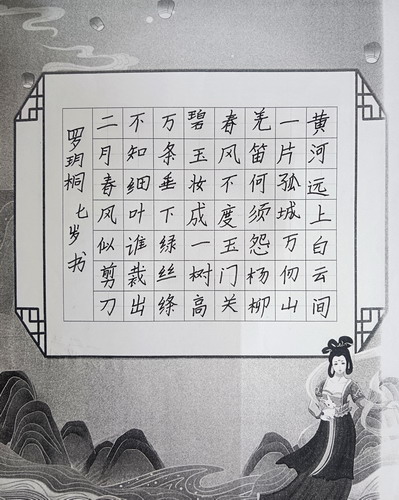 黄河远上白云间
一片孤城万仞山
羌笛何须怨杨柳
春风不度玉门关
碧玉妆成一树高
万条垂下绿丝绦
不知细叶谁裁出
二月春风似剪刀
罗玥桐 七岁书